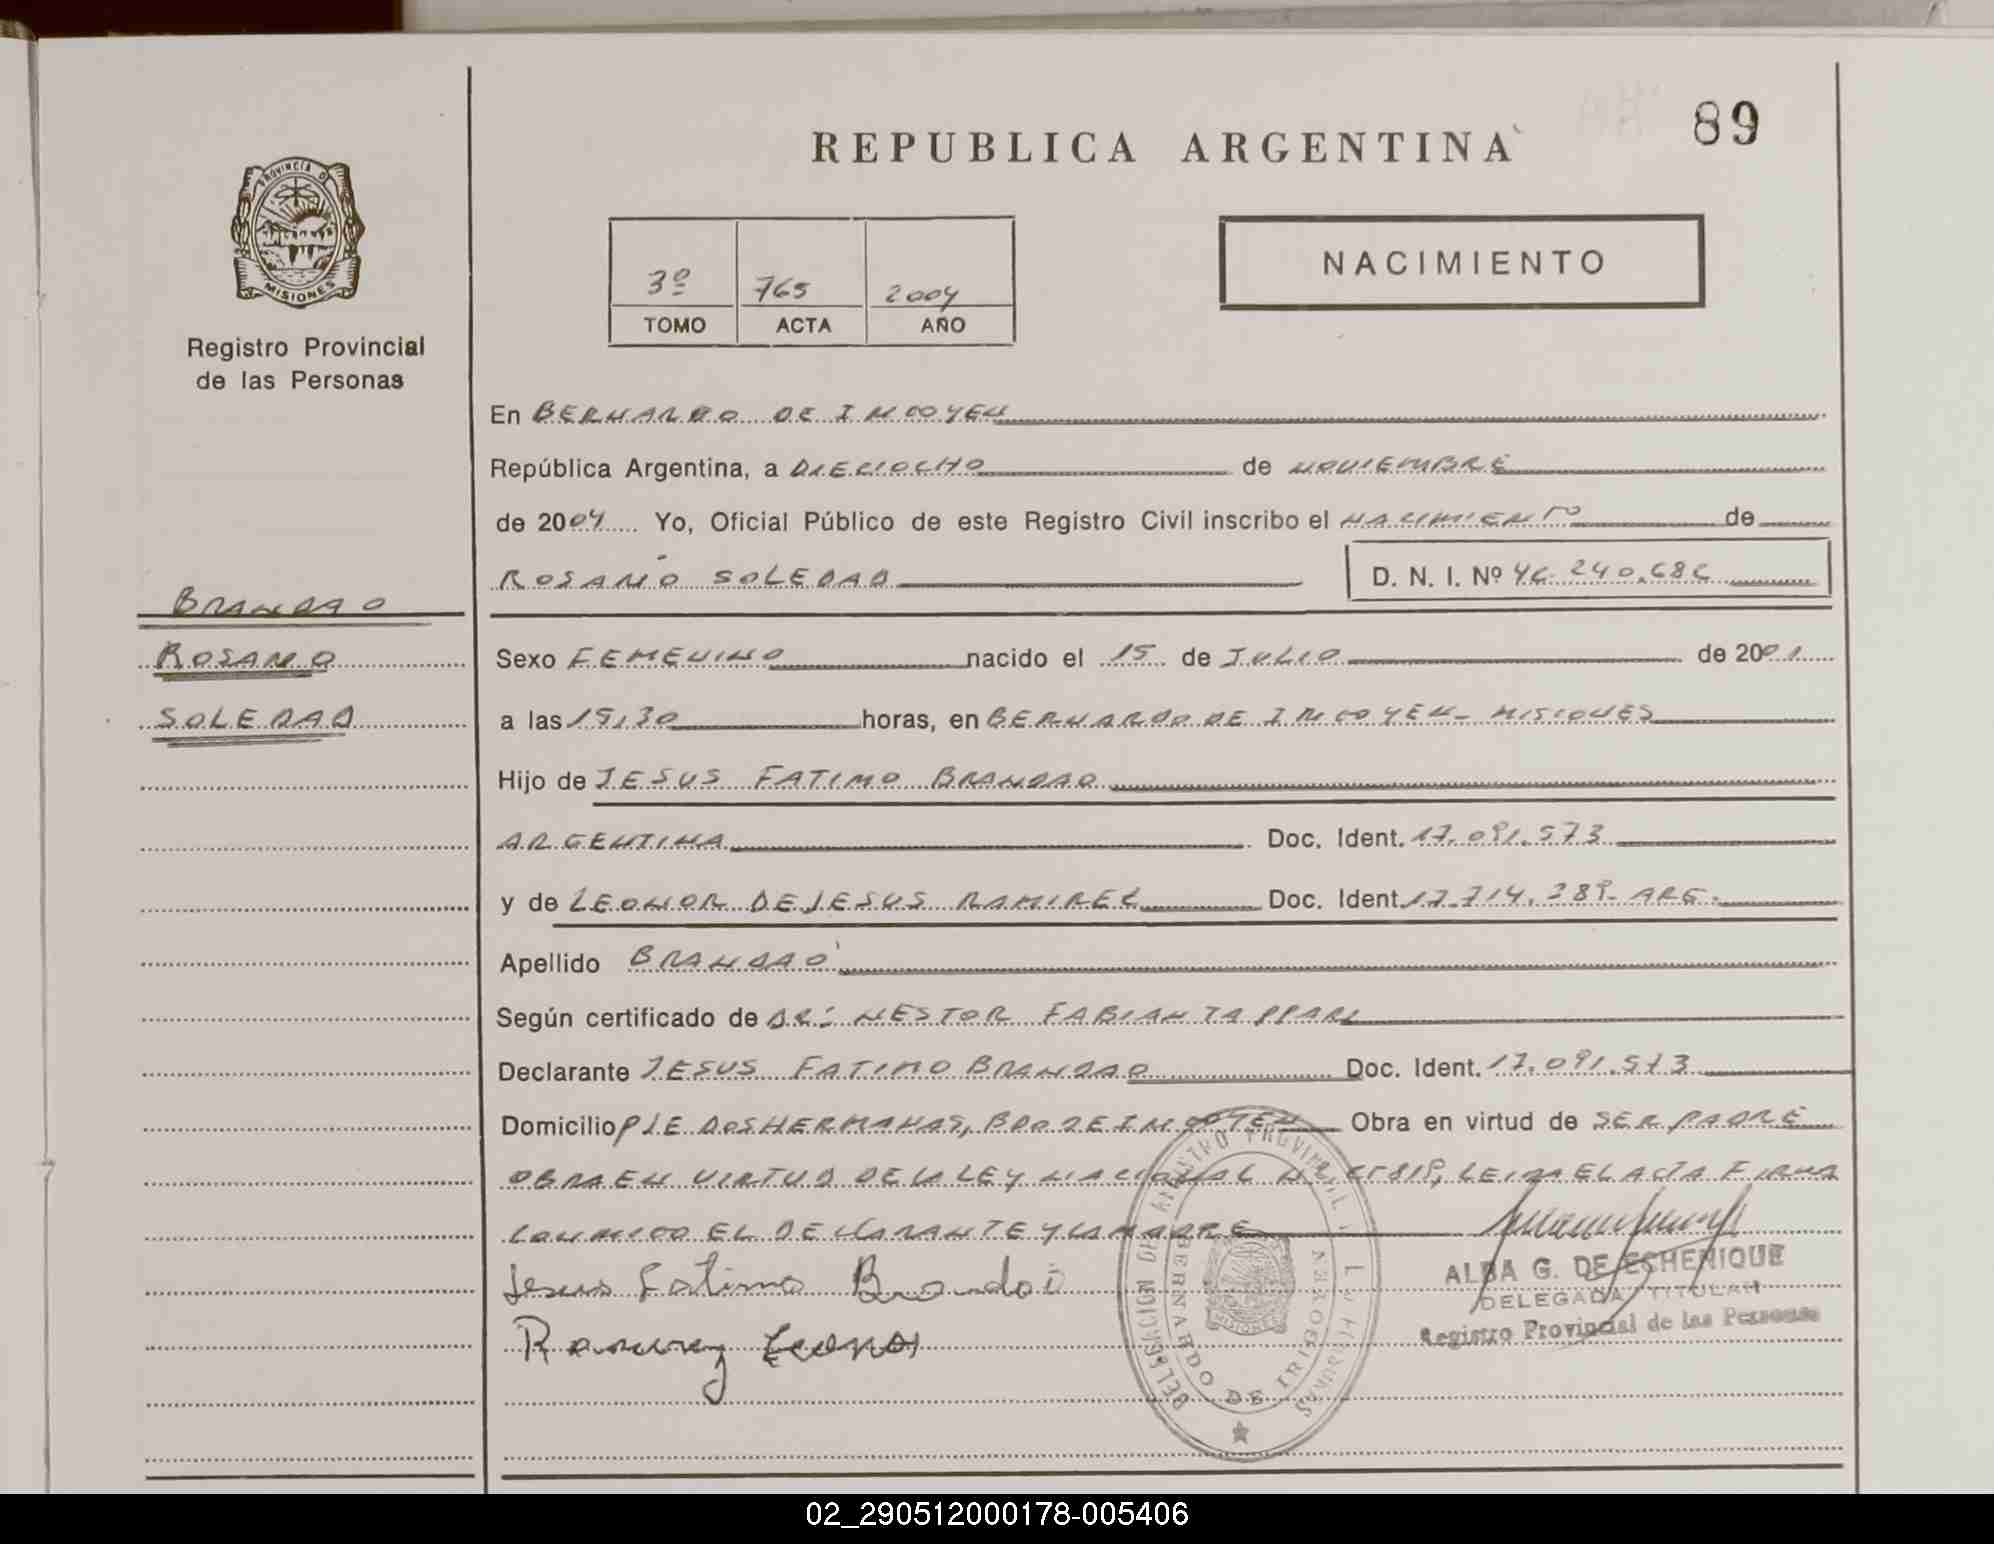 89
REPUBLICA ARGENTINA
PROVINCIA DE
MISIONES
Registro Provincial
de las Personas
3º 765 2004
TOMO ACTA AÑO
NACIMIENTO
En BERNARDO DE IRIGOYEN
República Argentina, a DIECIOCHO de NOVIEMBRE
de 2004 Yo, Oficial Público de este Registro Civil inscribo el NACIMIENTO de
ROSANO SOLEDAD D. N. I. Nº 46.240.686
BRANDAO
ROSANO
SOLEDAD
Sexo FEMENINO nacido el 15 de JULIO de 2001
a las 15,30 horas, en BERNARDO DE IRIGOYEN- MISIONES
Hijo de JESUS FATIMO BRANDAO
ARGENTINA Doc. Ident. 17.091.573
y de LEONOR DE JESUS RAMIREZ Doc. Ident. 17.714.389- ARG.
Apellido BRANDAO
Según certificado de DR: NESTOR FABIAN TAPPARI
Declarante JESUS FATIMO BRANDAO Doc. Ident. 17.091.573
Domicilio PJE DOS HERMANAS, BDO DE IRIGOYEN Obra en virtud de SER PADRE
OBRA EN VIRTUD DE LA LEY NACIONAL Nº 25819, LEIDA EL ACTA FIRMA
CONMIGO EL DECLARANTE Y LA MADRE
Jesus Fatimo Brandao
Ramirez Leonor
ALBA G. DE ECHENIQUE
DELEGADA TITULAR
Registro Provincial de las Personas
DELEGACION DEL REGISTRO PROVINCIAL DE LAS PERSONAS
BERNARDO DE IRIGOYEN
MISIONES
02_290512000178-005406